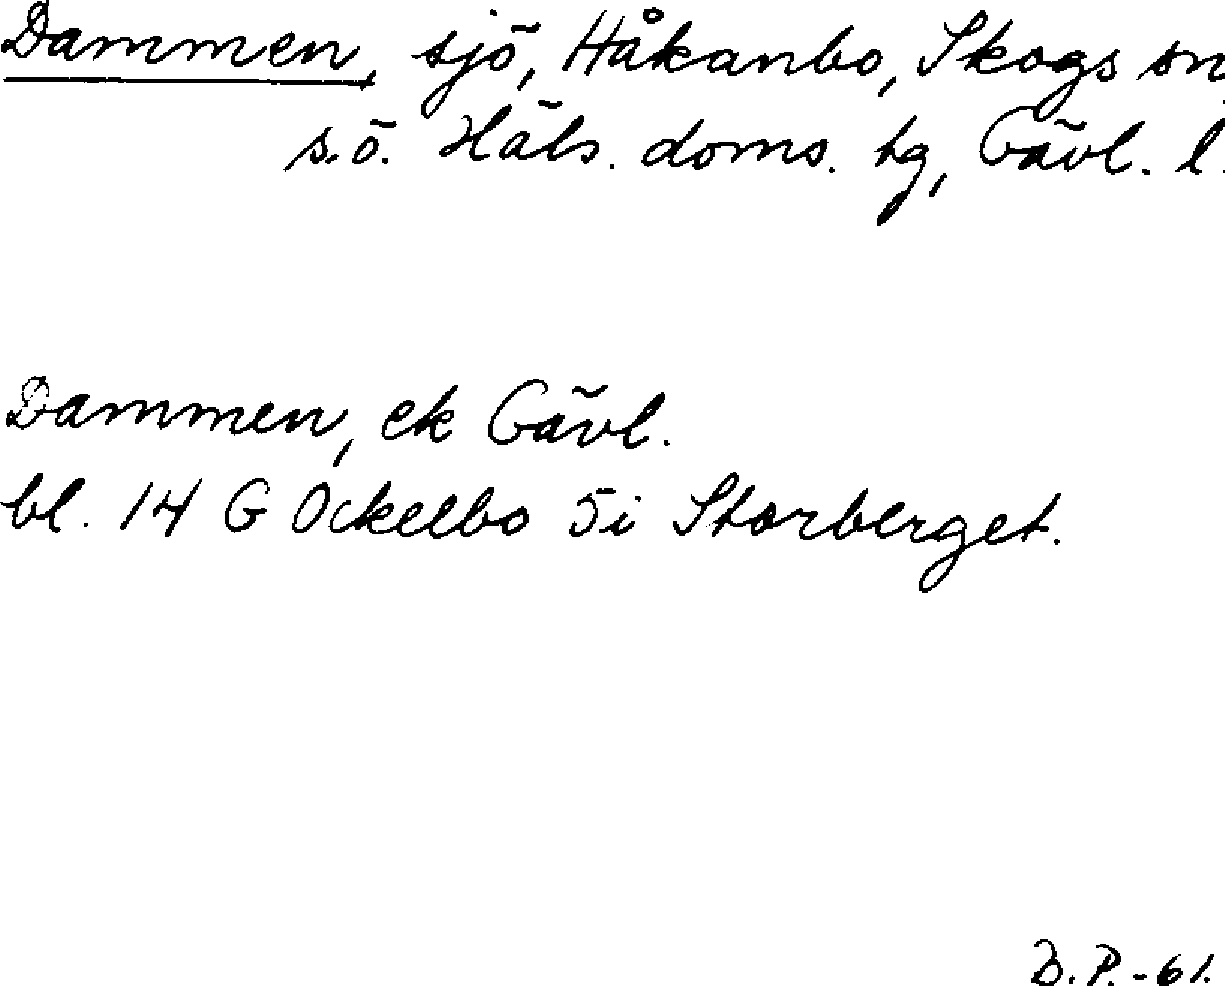 Dammen, sjö, Håkanbo, Skogs sn,
s.ö. Häls. doms. hg, Gävl. l.
Dammen, ek Gävl.
bl. 14 G Ockelbo 5i Storberget.
B.P.-61.